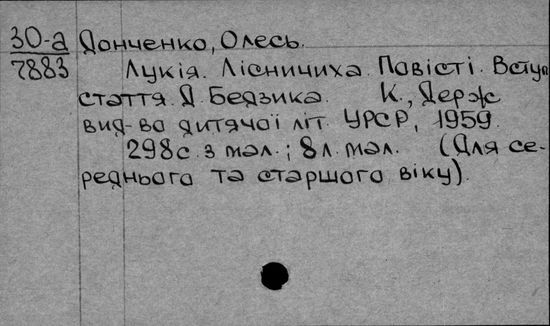 30-а Донченко, Олесь.
7883 Лукія. Лісничиха. Повісті. Вступ
стаття Д. Бедзика. К., Держ
вид-во дитячої літ. УРСР, 1959.
298с. з мал.; 8 л. мал. (Для се-
реднього та старшого віку).